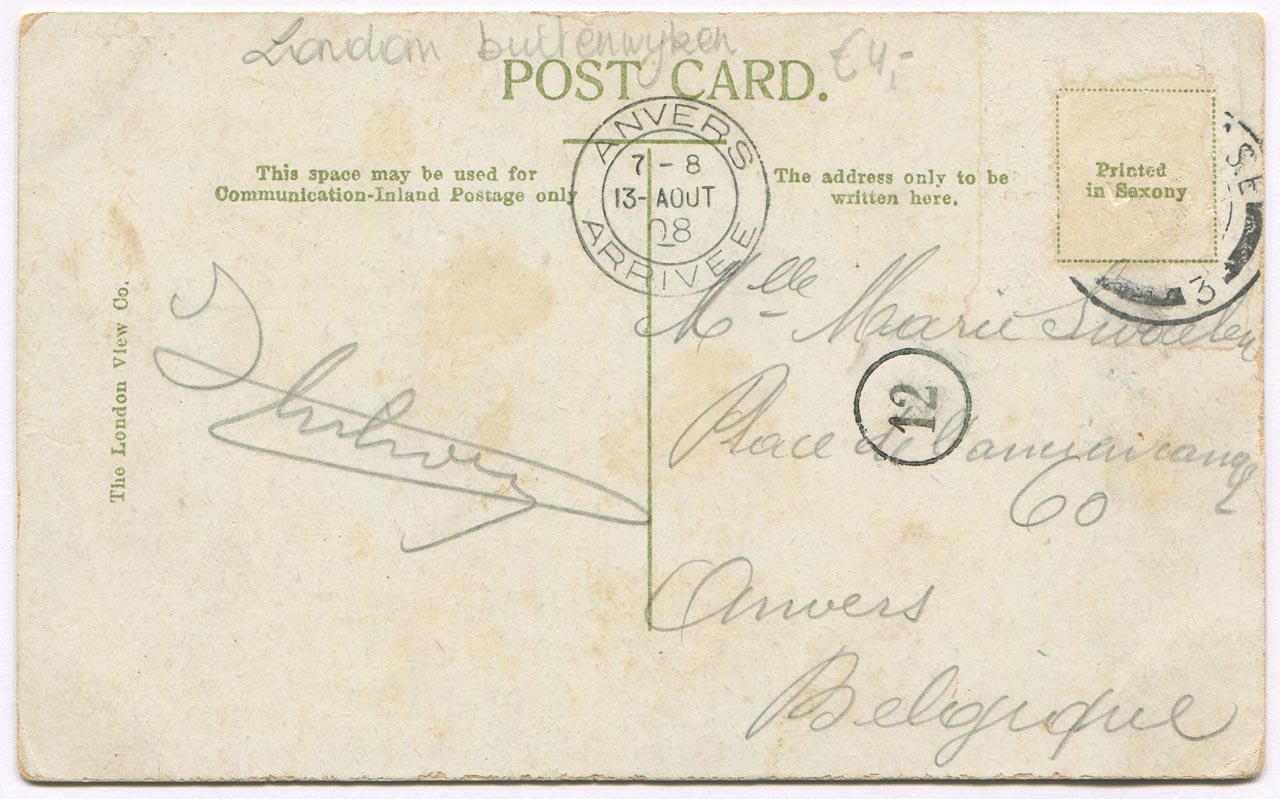 London buitenwyken €4,-
POST CARD.
This space may be used for
Communication-Inland Postage only
The address only to be
written here.
Printed
in Saxony
ANVERS
7-8
13-AOUT
08
ARRIVEE
S.E
3
The London View Co.
Mlle Marie
12
Place de
60
Anvers
Belgique